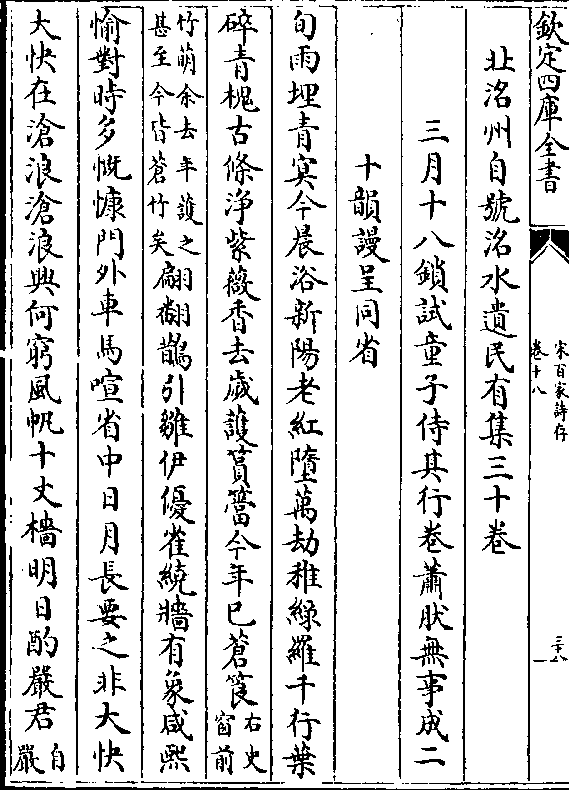 欽定四庫全書
宋百家詩存
卷十八
三十八
北洺州自號洺水遺民有集三十卷
三月十八鎖試童子侍其行卷蕭肰無事成二
十韻謾呈同省
旬雨埋青冥今晨浴新陽老紅墮萬劫稚緑羅千行葉
碎青槐古條淨紫薇香去歲護篔簹今年已蒼筤右史
窗前
竹萌余去年護之
甚至今皆蒼竹矣翩翻鵲引雛伊優雀繞牆有象咸熙
愉對時多慨慷門外車馬喧省中日月長要之非大快
大快在滄浪滄浪興何窮風帆十丈檣明日酌嚴君自
嚴